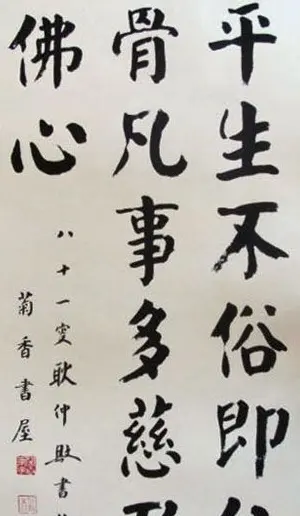 平生不俗即
骨凡事多慈
佛心
八十一叟耿仲敭書
菊香書屋